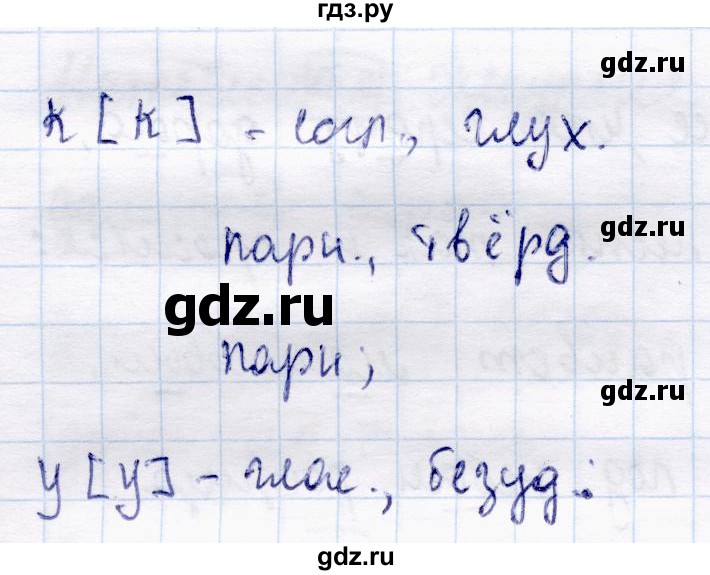 гдз.ру
gdz.ru
к [к] - согл., глух.
парн., твёрд.
gdz.ru
gdz.ru
парн;
gdz.ru
у [у] - глас., безуд.:
gdz.ru